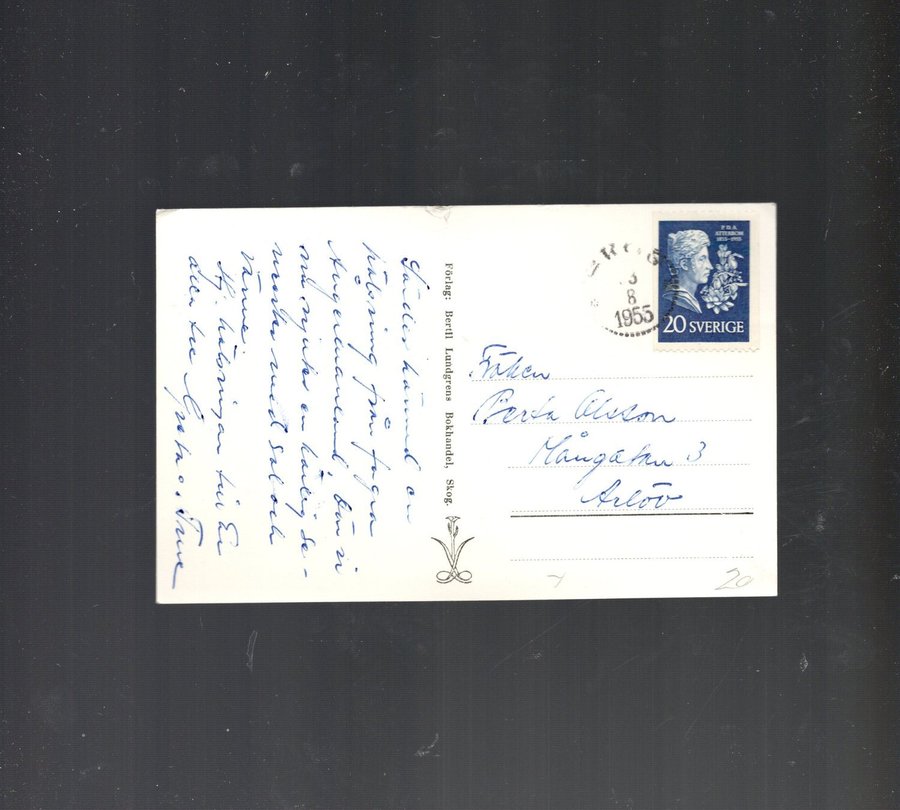 Sänder härmed en
hälsning från fagra
Ångermanland där vi
nu njuter en härlig se-
mester med sol och
värme.
Hj. hälsningar till Er
alla tre Gösta o. Tyra
Förlag: Bertil Lundgrens Bokhandel, Skog.
P.D.A.
ATTERBOM
1855-1955
20 SVERIGE
8
1955
Fröken
Berta Olsson
Mångatan 3
Arlöv
20